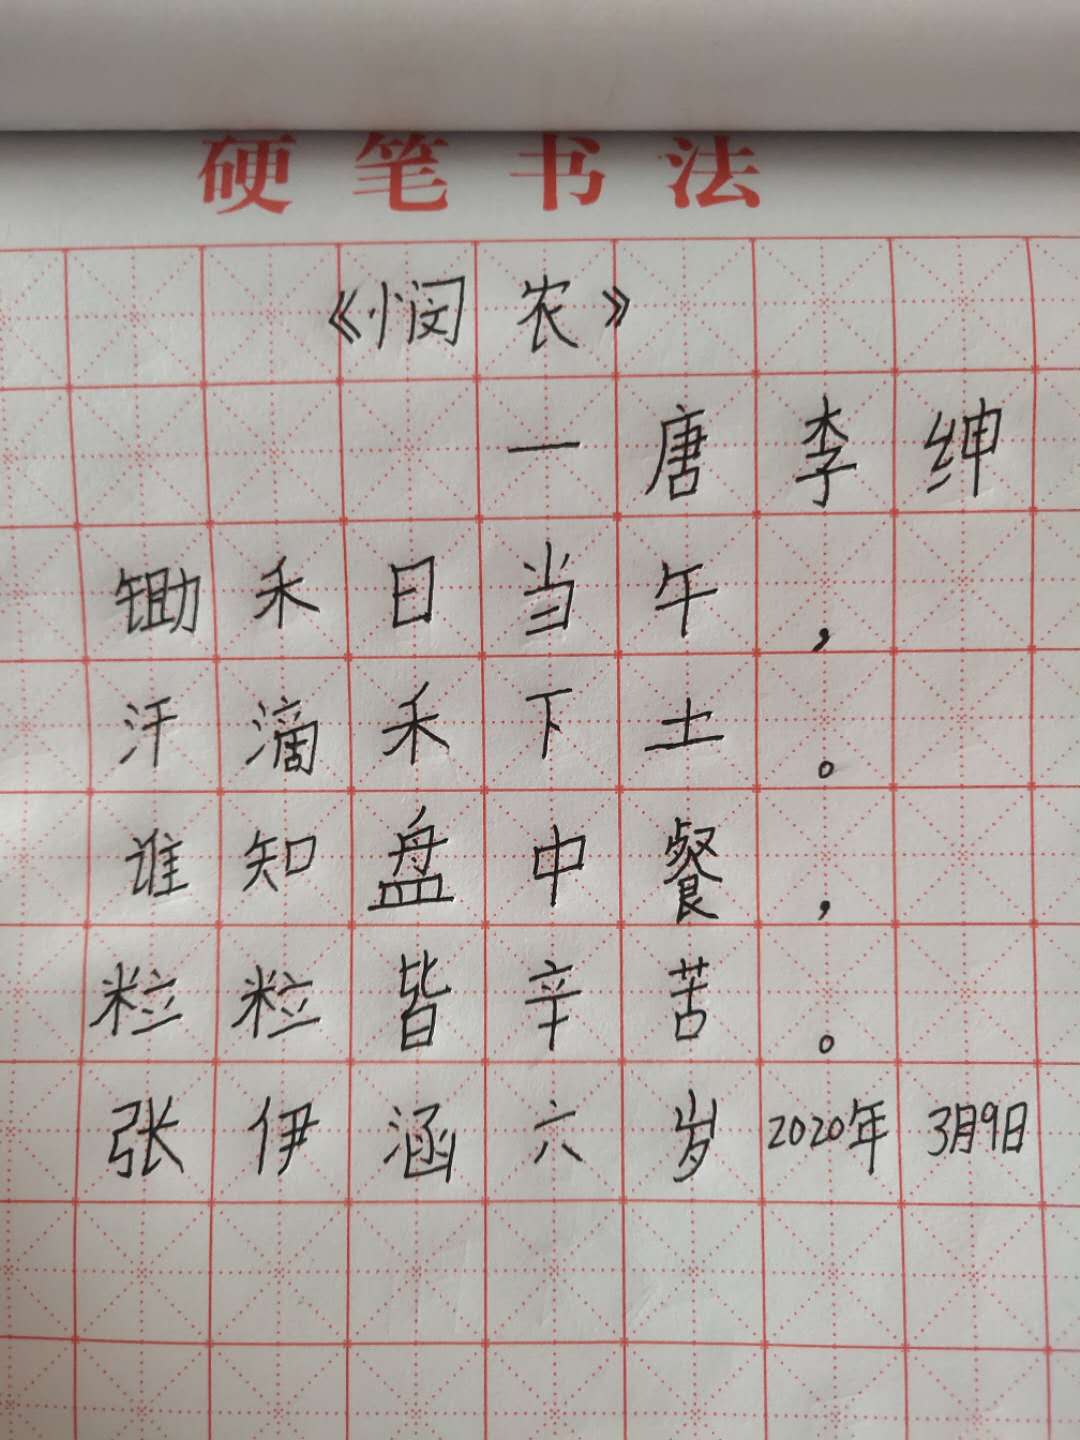 硬笔书法
《悯农》
一唐李绅
锄禾日当午，
汗滴禾下土。
谁知盘中餐，
粒粒皆辛苦。
张伊涵六岁2020年3月9日